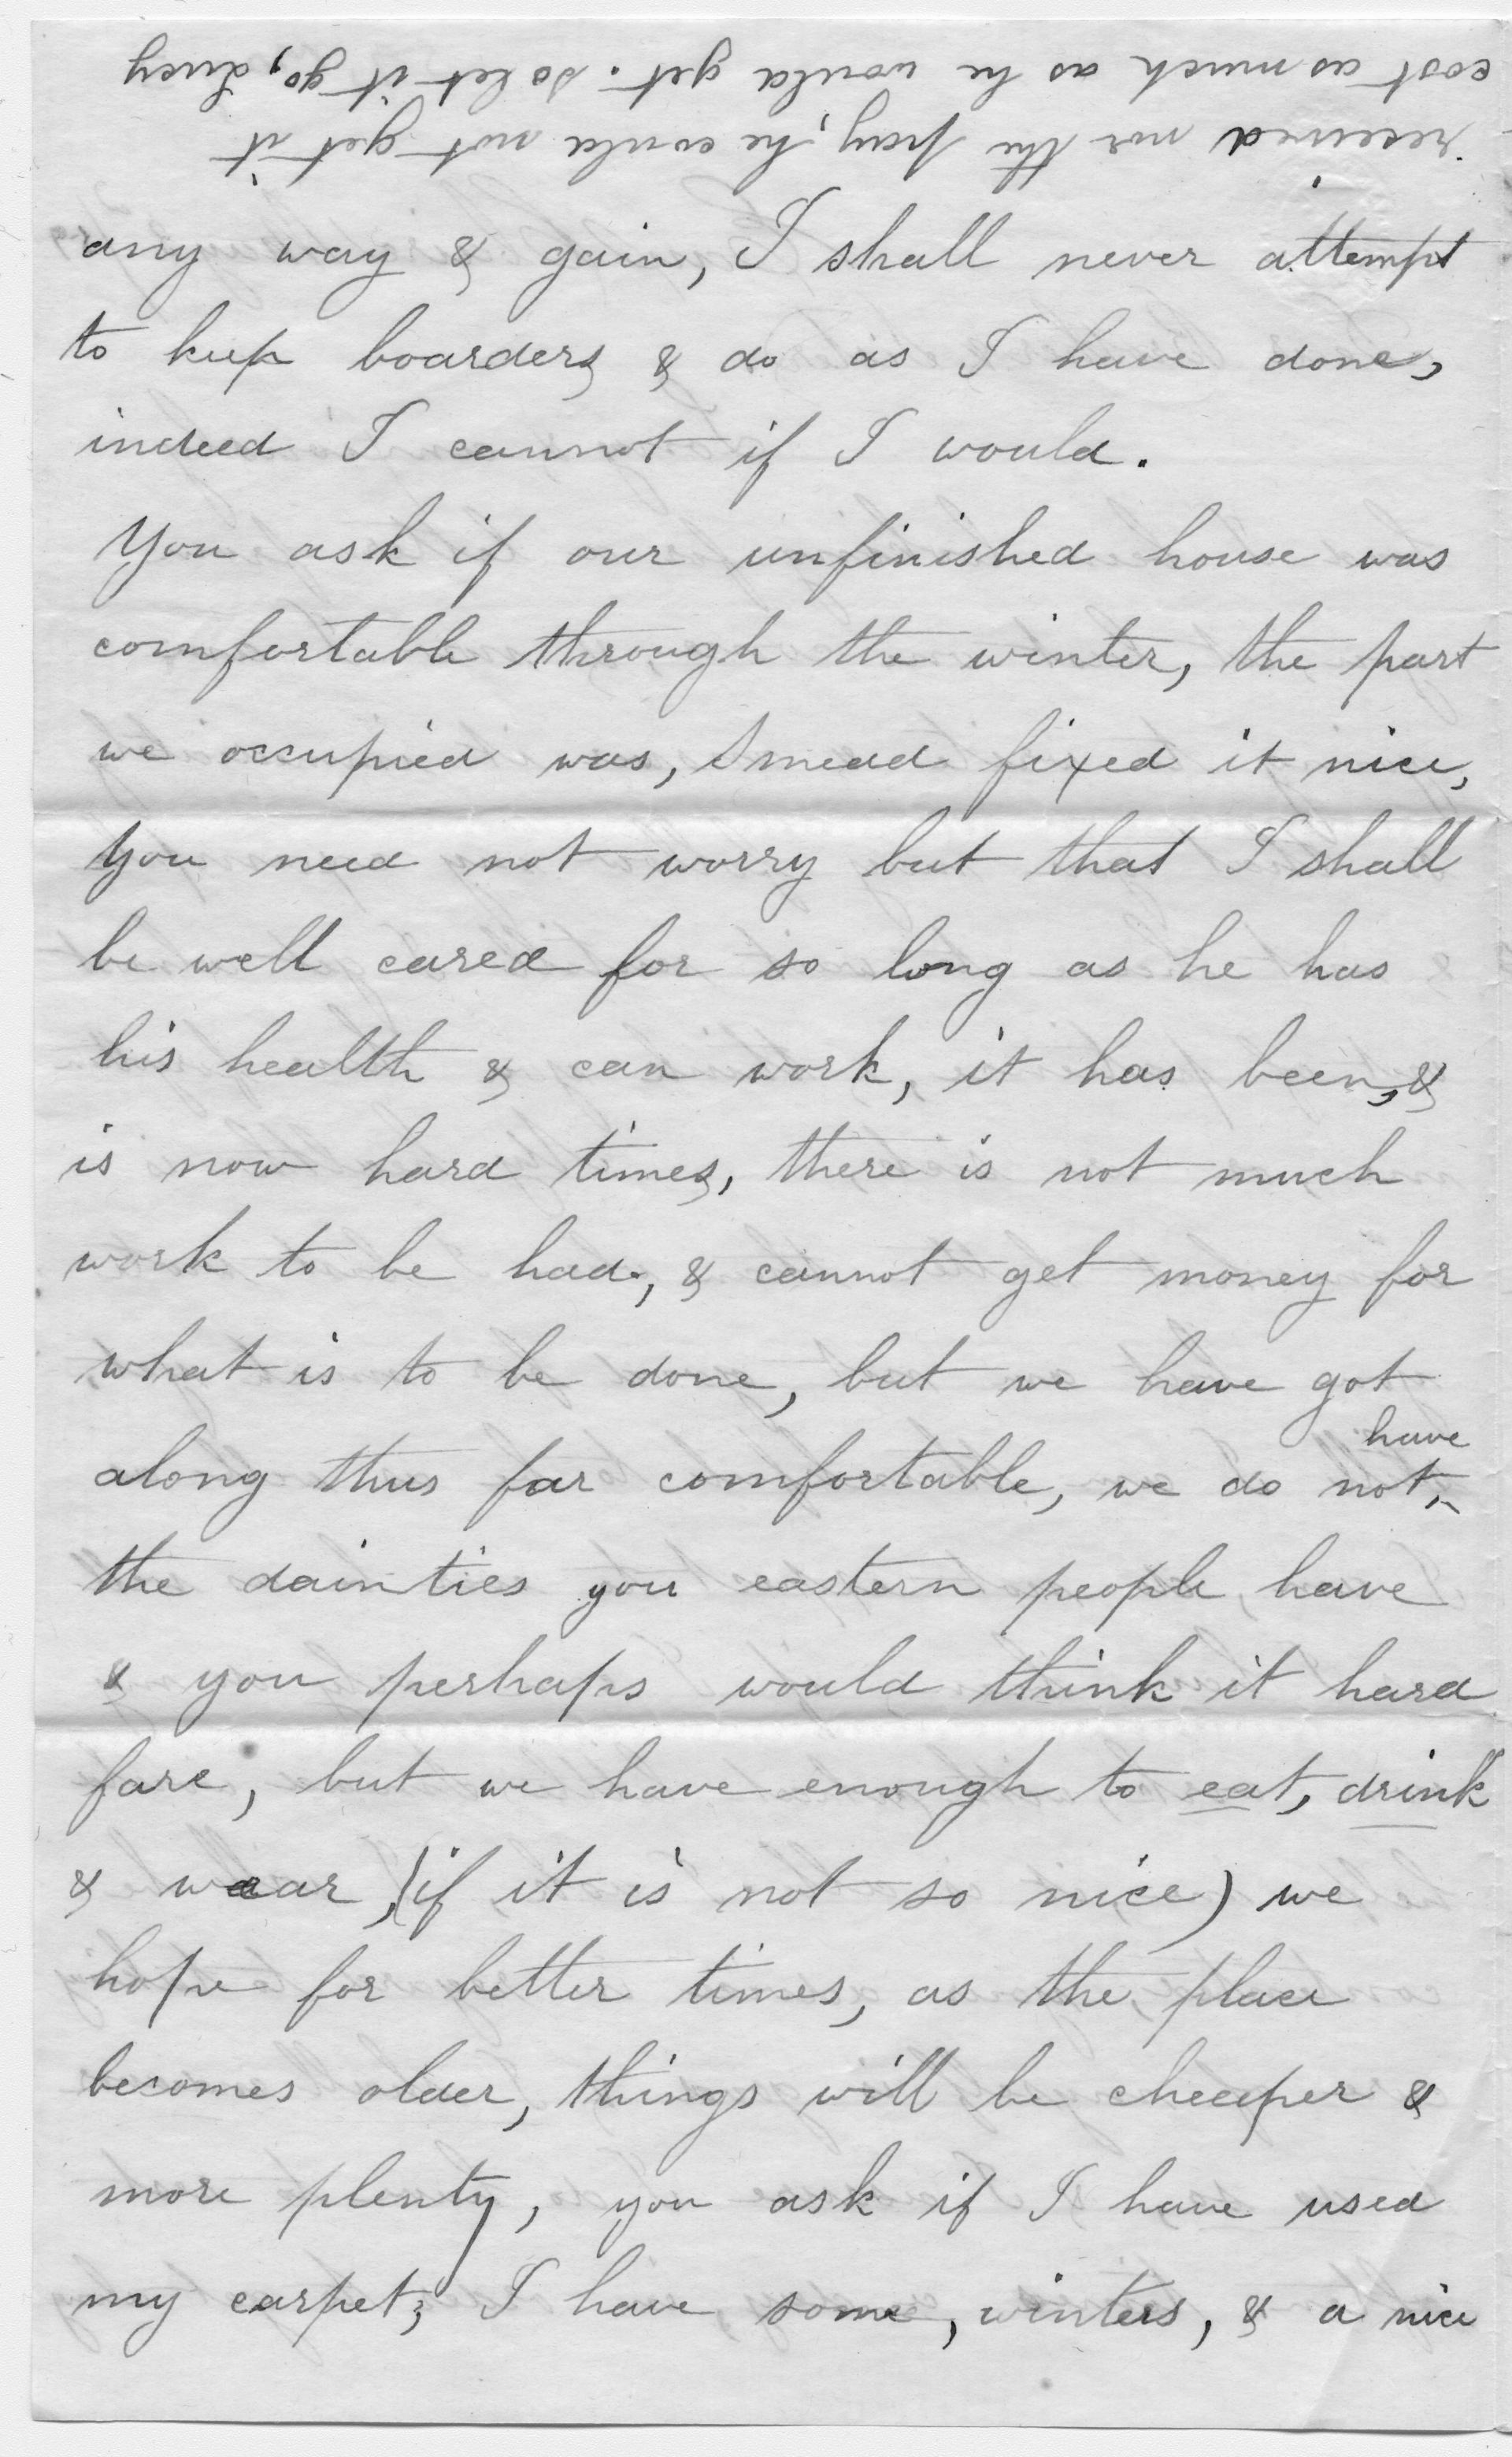 received nor the pay, he could not get it
cost as much as he would get. So let it go, Lucy
any way & gain, I shall never attempt
to keep boarders & do as I have done,
indeed I cannot if I would.
You ask if our unfinished house was
comfortable through the winter, the part
we occupied was, Smead fixed it nice,
You need not worry but that I shall
be well cared for so long as he has
his health & can work, it has been, &
is now hard times, there is not much
work to be had, & cannot get money for
what is to be done, but we have got
have
along thus far comfortable, we do not
the dainties you eastern people have
& you perhaps would think it hard
fare, but we have enough to eat, drink
& wear, (if it is not so nice) we
hope for better times, as the place
becomes older, things will be cheeper &
more plenty, you ask if I have used
my carpet; I have some, winters, & a nice